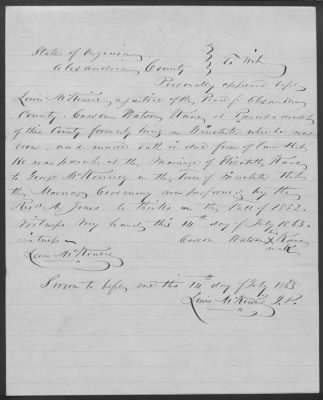 State of Virginia
Alexandria County } To Wit
Personally appeared before
Lewis McKenzie, a justice of the Peace for Alexandria
County. Carson Watson Kane, at Present a resident
of this County formerly living in Winchester where he was
born, and made oath in due form of law that
He was present at the Marriage of Elizabeth Kane
to George McKenney in the town of Winchester that
the Marriage Ceremony was performed by the
Revd A. Jones. he thinks in the Fall of 1852.
Witness My hand this 14th day of July 1863.
witness — his
Carson Watson X Kane
mark
Lewis McKenzie
Sworn to before me this 14th day of July 1863
Lewis McKenzie J.P.